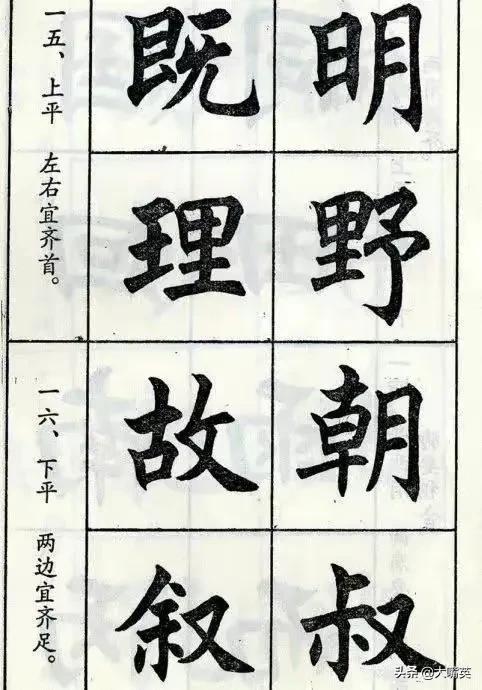 一五、上平 左右宜齐首。
既 明
理 野
一六、下平 两边宜齐足。
故 朝
叙 叔
头条 @大嘴英